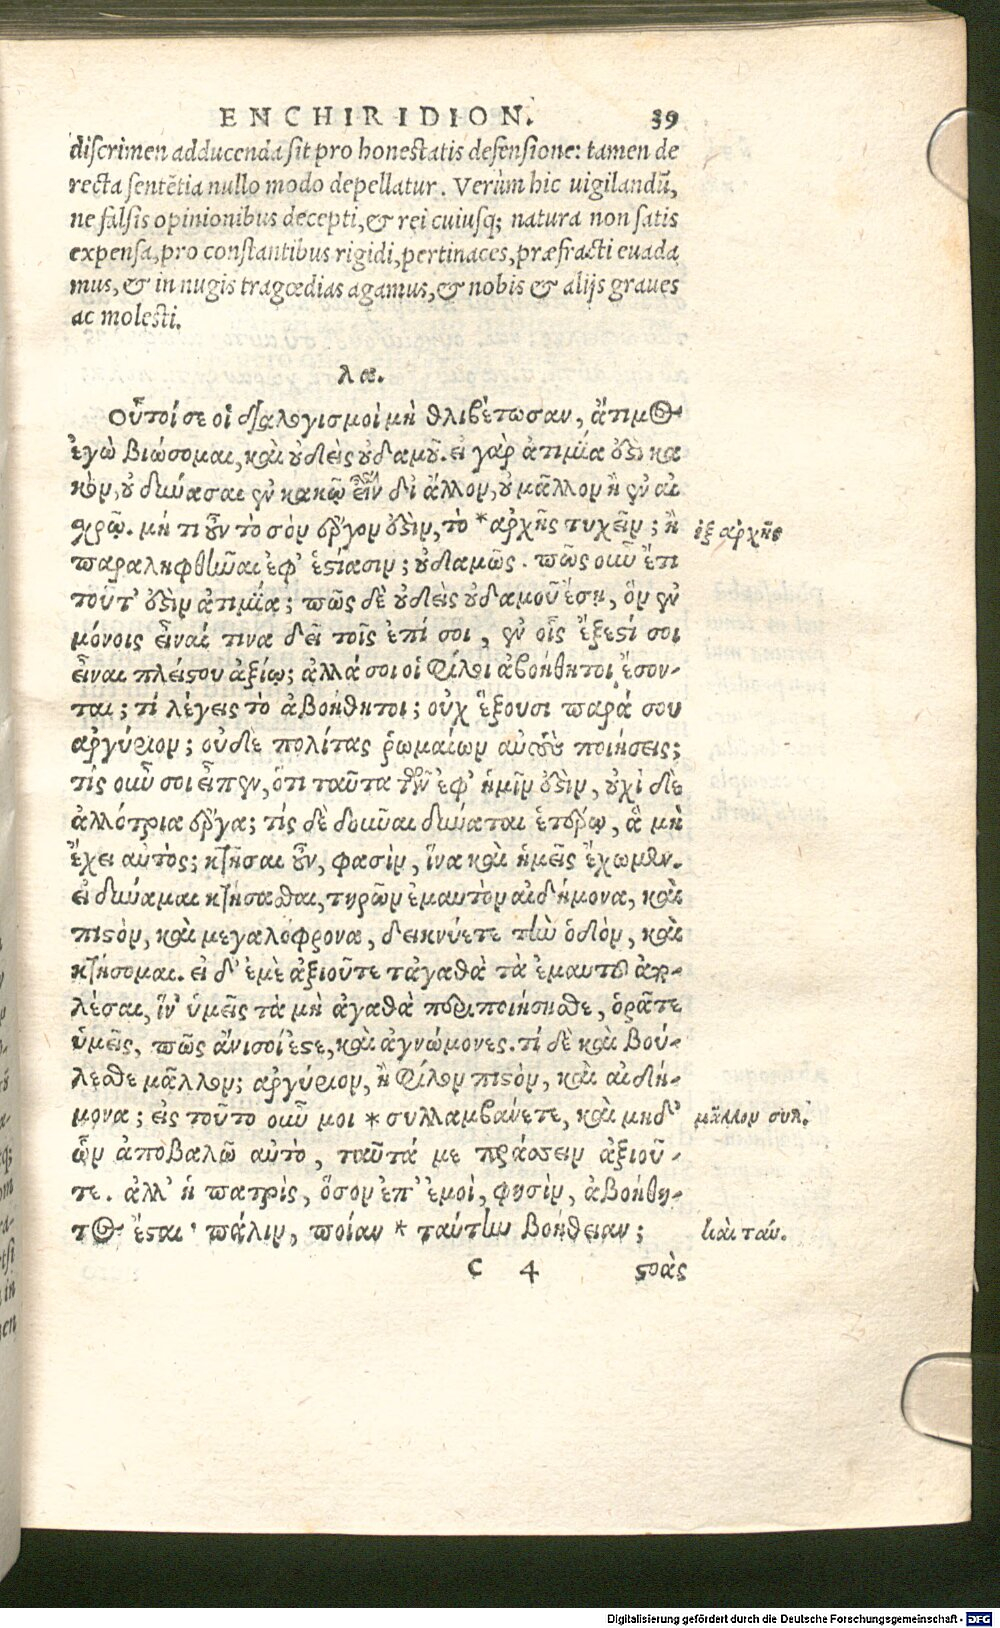 ENCHIRIDION. 39
discrimen adducenda sit pro honestatis defensione: tamen de
recta sentẽtia nullo modo depellatur. Verùm hic uigilandũ,
ne falsis opinionibus decepti, & rei cuiusq; natura non satis
expensa, pro constantibus rigidi, pertinaces, præfracti euada
mus, & in nugis tragœdias agamus, & nobis & alijs graues
ac molesti.
λα.
Οὗτοί σε οἱ διαλογισμοὶ μὴ θλιβέτωσαν, ἄτιμος
ἐγὼ βιώσομαι, καὶ οὐδεὶς οὐδαμοῦ. εἰ γὰρ ἀτιμία ὅξὶ κα
κὸν, οὐ δύνασαι ἐν κακῷ εἶναι δι' ἄλλον, οὐ μᾶλλον ἢ ἐν αἰ
χρῷ. μή τι οὖν τὸ σὸν ἔργον ὅξὶν, τὸ * ἀρχῆς τυχεῖν; ἢ
ἐξ ἀρχῆς
παραληφθῆναι ἐφ' ἑστίασιν; οὐδαμῶς. πῶς οὖν ἔτι
τοῦτ' ὅξὶν ἀτιμία; πῶς δὲ οὐδεὶς οὐδαμοῦ ἔσῃ, ὃν ἐν
μόνοις εἶναί τινα δεῖ τοῖς ἐπί σοι, ἐν οἷς ἔξεστί σοι
εἶναι πλείστου ἀξίῳ; ἀλλά σοι οἱ φίλοι ἀβοήθητοι ἔσον-
ται; τί λέγεις τὸ ἀβοήθητοι; οὐχ ἕξουσι παρά σου
ἀργύριον; οὐδὲ πολίτας ῥωμαίων αὐτοὺς ποιήσεις;
τίς οὖν σοι εἶπεν, ὅτι ταῦτα τῶν ἐφ' ἡμῖν ὅξὶν, οὐχὶ δὲ
ἀλλότρια ἔργα; τίς δὲ δοῦναι δύναται ἑτέρῳ, ἃ μὴ
ἔχει αὐτός; κτῆσαι οὖν, φασὶν, ἵνα καὶ ἡμεῖς ἔχωμεν.
εἰ δύναμαι κτήσασθαι, τηρῶν ἐμαυτὸν αἰδήμονα, καὶ
πιστὸν, καὶ μεγαλόφρονα, δεικνύετε τὴν ὁδὸν, καὶ
κτήσομαι. εἰ δ' ἐμὲ ἀξιοῦτε τἀγαθὰ τὰ ἐμαυτοῦ ἀπο-
λέσαι, ἵν' ὑμεῖς τὰ μὴ ἀγαθὰ περιποιήσησθε, ὁρᾶτε
ὑμεῖς, πῶς ἄνισοί ἐστε, καὶ ἀγνώμονες. τί δὲ καὶ βού-
λεσθε μᾶλλον; ἀργύριον, ἢ φίλον πιστὸν, καὶ αἰδή-
μονα; εἰς τοῦτο οὖν μοι * συλλαμβάνετε, καὶ μηδ'
μᾶλλον συλ.
ὧν ἀποβαλῶ αὐτὸ, ταῦτά με πράσσειν ἀξιοῦ-
τε. ἀλλ' ἡ πατρὶς, ὅσον ἐπ' ἐμοί, φησὶν, ἀβοήθη-
τος ἔσται· πάλιν, ποίαν * ταύτην βοήθειαν;
καὶ ταύ.
C 4 στοὰς
Digitalisierung gefördert durch die Deutsche Forschungsgemeinschaft - DFG